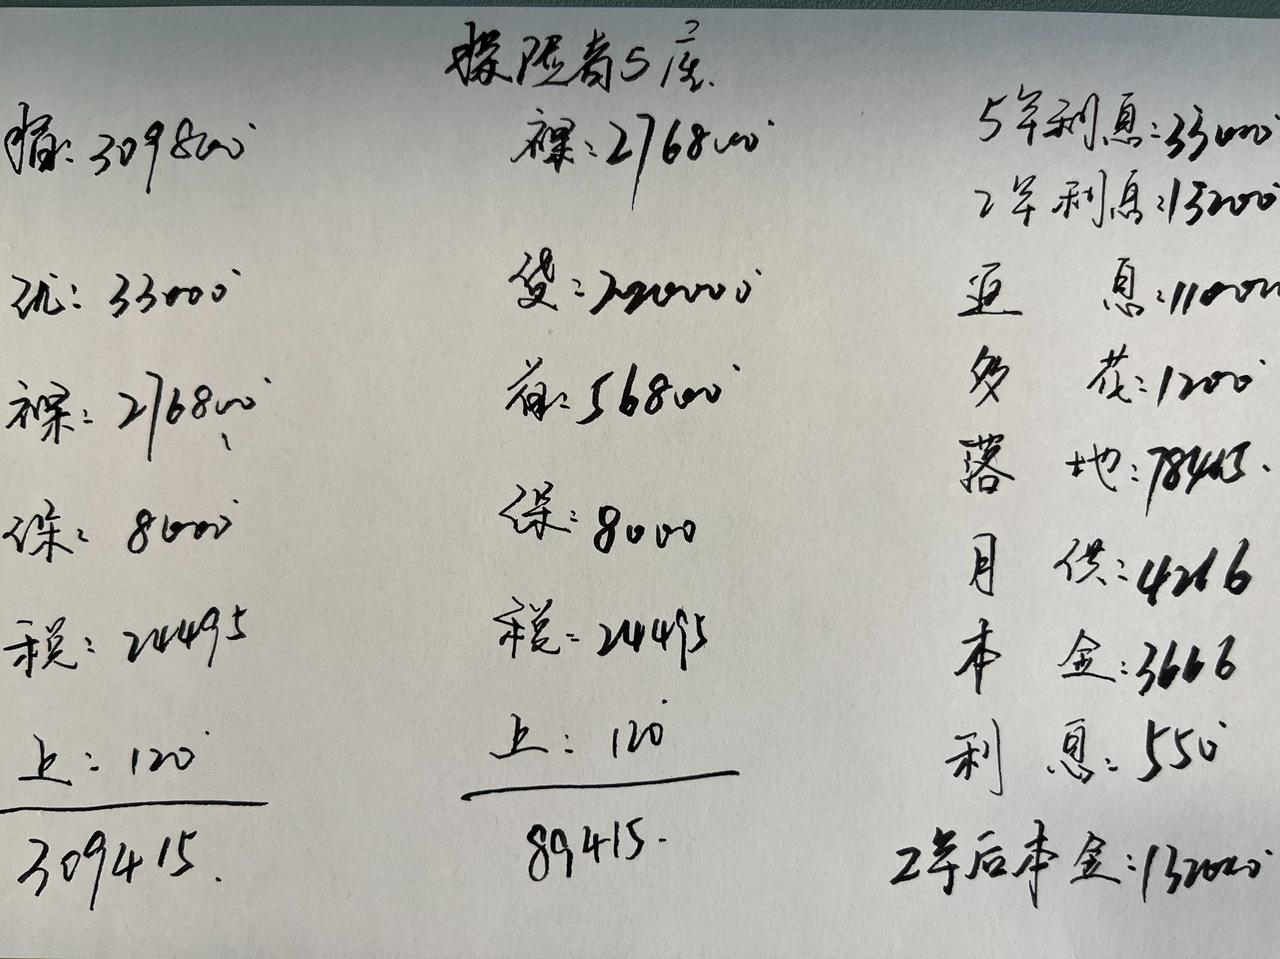 探险者5座
指: 309800
优: 33000
裸: 276800
保: 8000
税: 24495
上: 120
309415
裸: 276800
贷: 220000
首: 56800
保: 8000
税: 24495
上: 120
89415
5年利息: 33000
2年利息: 13200
返息: 11000
多花: 1200
落地: 78415
月供: 4216
本金: 3666
利息: 550
2年后本金: 132000